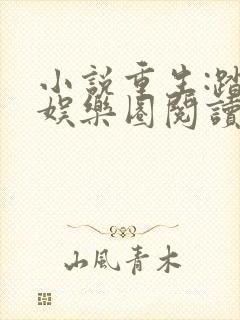 小説重生:踏
娛樂圈閱讀
山風青木